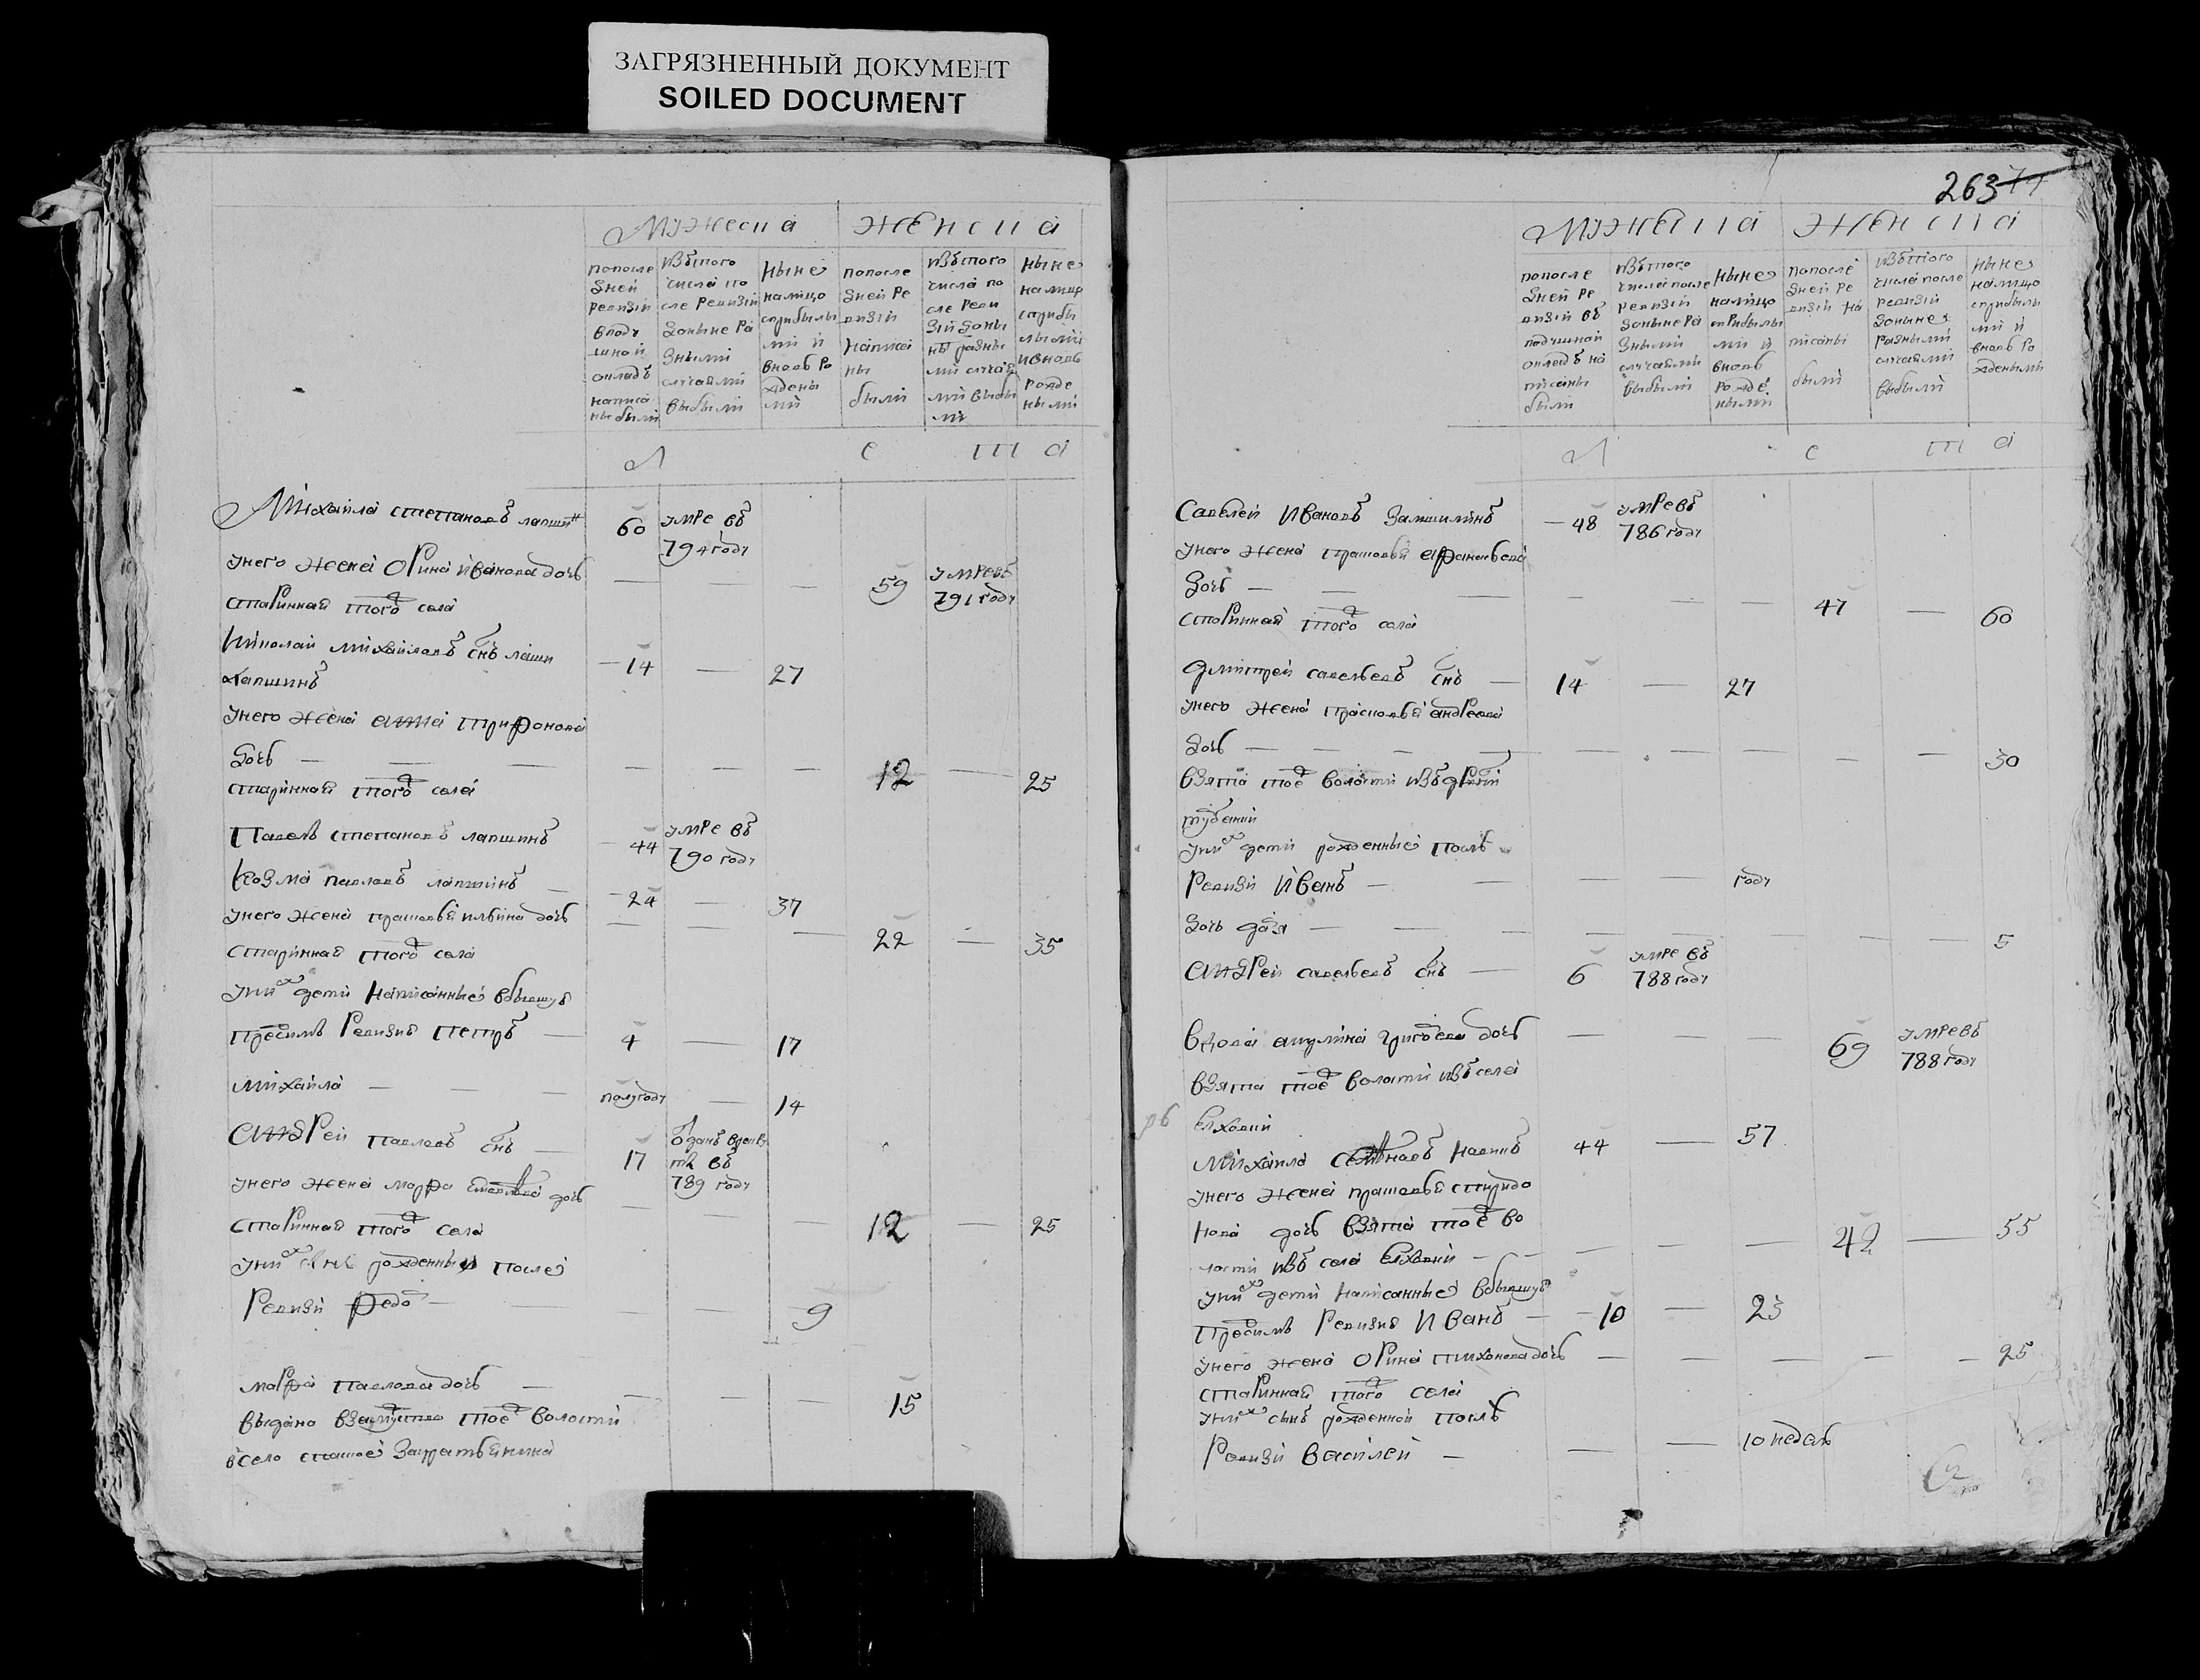 ЗАГРЯЗНЕННЫЙ ДОКУМЕНТ
SOILED DOCUMENT
мужеска женска
попосле дней ревизии вподушной окладъ написаны были
избтого числа после ревизии доныне разными случаями выбыли
ныне налицо сприбылыми и вновь рождеными
попосле дней ревизии написаны были
избтого числа после ревизии доныне разными случаями выбыли
ныне налицо сприбылыми и вновь рождеными
л е т а
Михайла степановъ лапшинъ 60 умре въ 794 году
унего жена Орина иванова дочь 59 умре въ 791 году
старинная того села
Николай михайловъ снъ лапшинъ 14 27
унего жена анна трифонова
дочь 12 25
старинная того села
Павелъ степановъ лапшинъ 44 умре въ 790 году
Козма павловъ лапшинъ 24 37
унего жена прасковья ильина дочь 22 35
старинная того села
уних дети написанные вбывшую
пред симъ Ревизию Петръ 4 17
михайла полугоду 14
андрей павловъ снъ 17 отданъ врекруты въ 789 году
унего жена марфа дочь 12 25
старинная того села
уних снъ рожденный после
Ревизии федоръ 9
марфа павлова дочь 15
выдана взамужство тоеж волости
всело
263
мужеска женска
попосле дней ревизии въ подушной окладъ написаны были
избтого числа после ревизии доныне разными случаями выбыли
ныне налицо сприбылыми и вновь рождеными
попосле дней ревизии написаны были
избтого числа после ревизии доныне разными случаями выбыли
ныне налицо сприбылыми и вновь рождеными
л е т а
Савелей Ивановъ 48 умре въ 786 году
унего жена прасковья афанасьева
дочь 47 60
старинная того села
дмитрей савельевъ снъ 14 27
унего жена прасковья андреева
дочь 30
взята тоеж волости изъ
уних дети рожденные послѣ
Ревизии Иванъ году
дочь 5
андрей савельевъ снъ 6 умре въ 788 году
вдова акулина григорьева дочь 69 умре въ 788 году
взята тоеж волости изъ села
Елховки
михайла 44 57
унего жена прасковья спиридо
нова дочь взята тоеж во
лости изъ села Елховки 42 55
уних дети написанные вбывшую
пред симъ Ревизию Иванъ 10 23
унего жена Орина тихонова дочь 25
старинная того села
уних сынъ рожденной послѣ
Ревизии Василей 10 недель